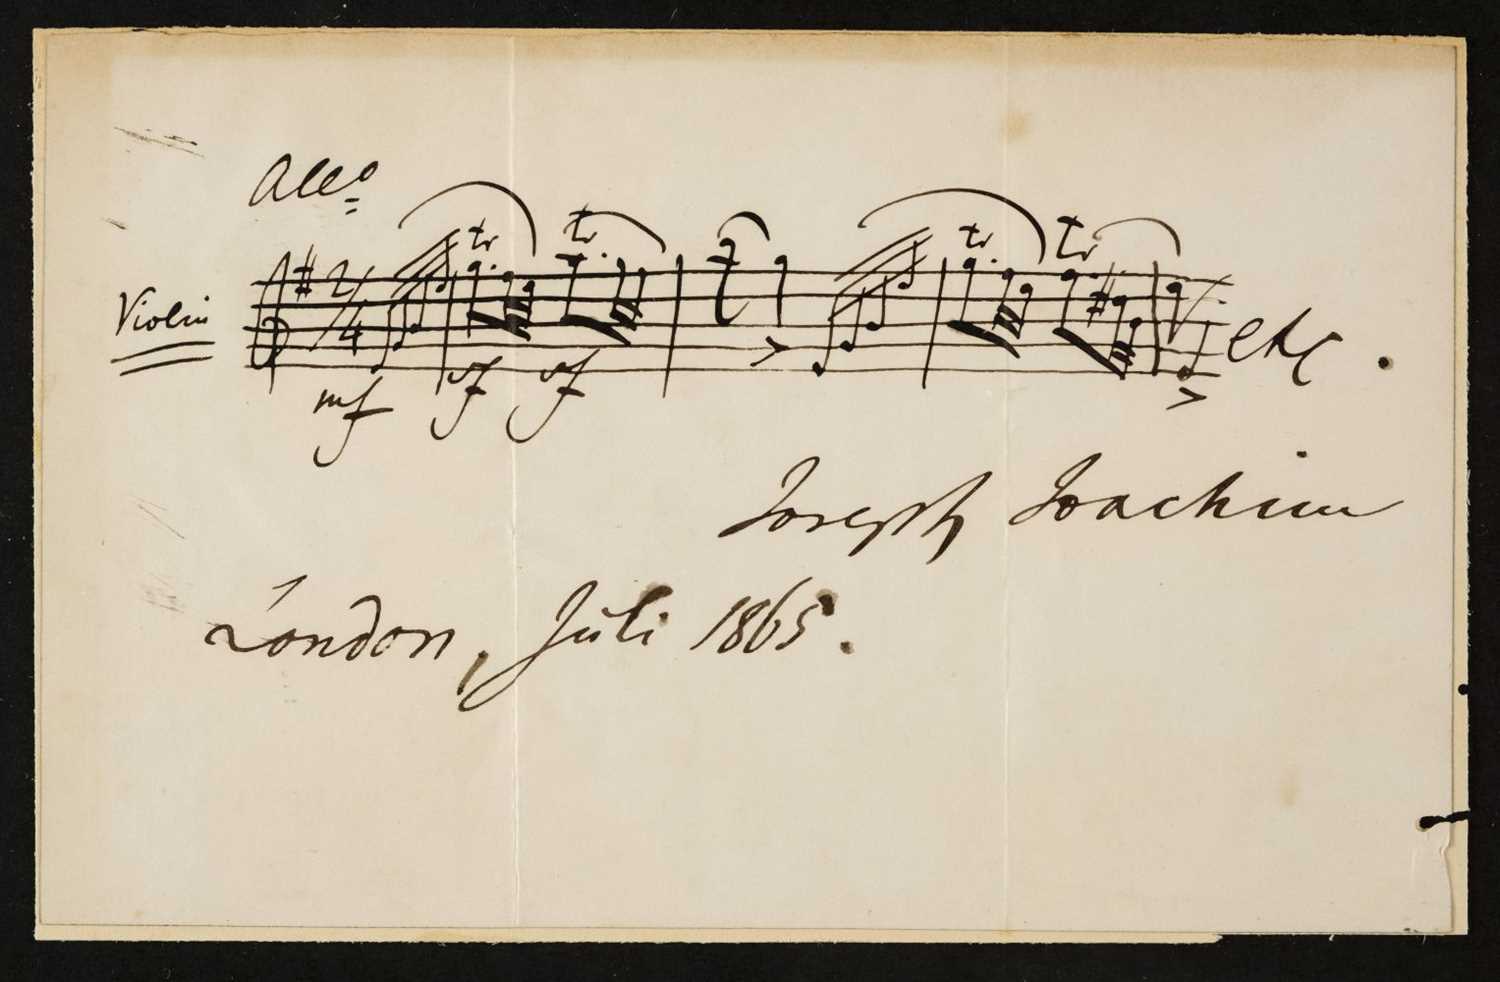 Allo
tr. tr. tr. tr.
Violin 2/4 etc.
mf sf sf
Joseph Joachim
London, Juli 1865.